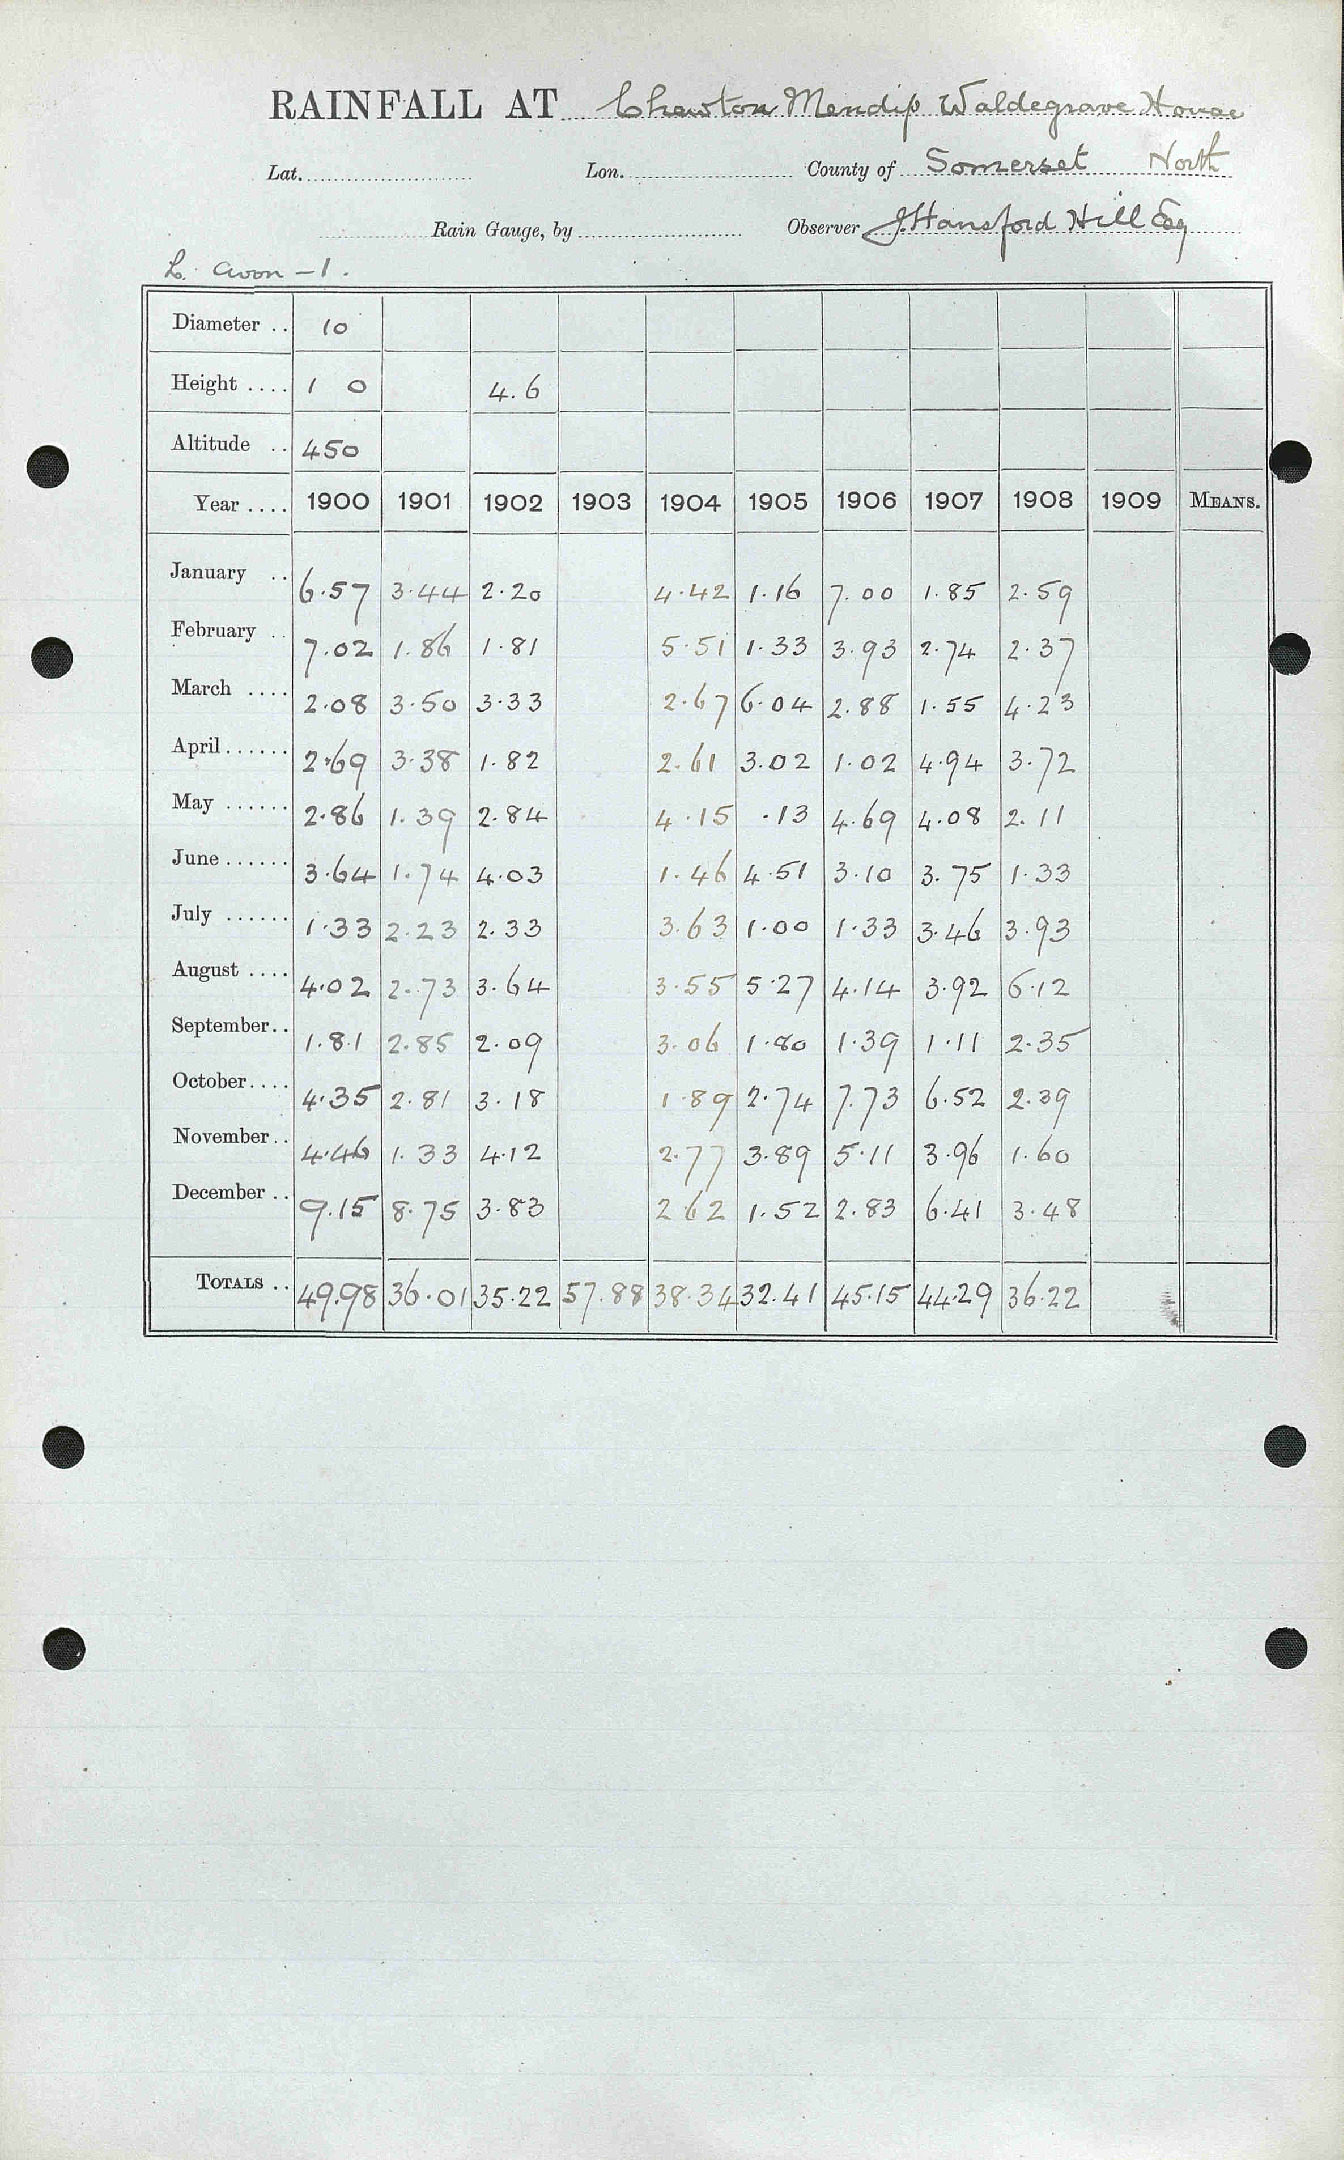 RAINFALL AT Chewton Mendip Waldegrave House
Lat. Lon. County of Somerset North
Rain Gauge, by Observer J. Hansford Hill Esq
L. Avon – 1.
Diameter .. 10
Height .... 1 0 4.6
Altitude .. 450
Year .... 1900 1901 1902 1903 1904 1905 1906 1907 1908 1909 MEANS.
January .. 6.57 3.44 2.20 4.42 1.16 7.00 1.85 2.59
February .. 7.02 1.86 1.81 5.51 1.33 3.93 2.74 2.37
March .... 2.08 3.50 3.33 2.67 6.04 2.88 1.55 4.23
April ...... 2.69 3.38 1.82 2.61 3.02 1.02 4.94 3.72
May ...... 2.86 1.39 2.84 4.15 .13 4.69 4.08 2.11
June ...... 3.64 1.74 4.03 1.46 4.51 3.10 3.75 1.33
July ...... 1.33 2.23 2.33 3.63 1.00 1.33 3.46 3.93
August .... 4.02 2.73 3.64 3.55 5.27 4.14 3.92 6.12
September .. 1.81 2.85 2.09 3.06 1.80 1.39 1.11 2.35
October .... 4.35 2.81 3.18 1.89 2.74 7.73 6.52 2.39
November .. 4.46 1.33 4.12 2.77 3.89 5.11 3.96 1.60
December .. 9.15 8.75 3.83 2.62 1.52 2.83 6.41 3.48
TOTALS .. 49.98 36.01 35.22 57.88 38.34 32.41 45.15 44.29 36.22